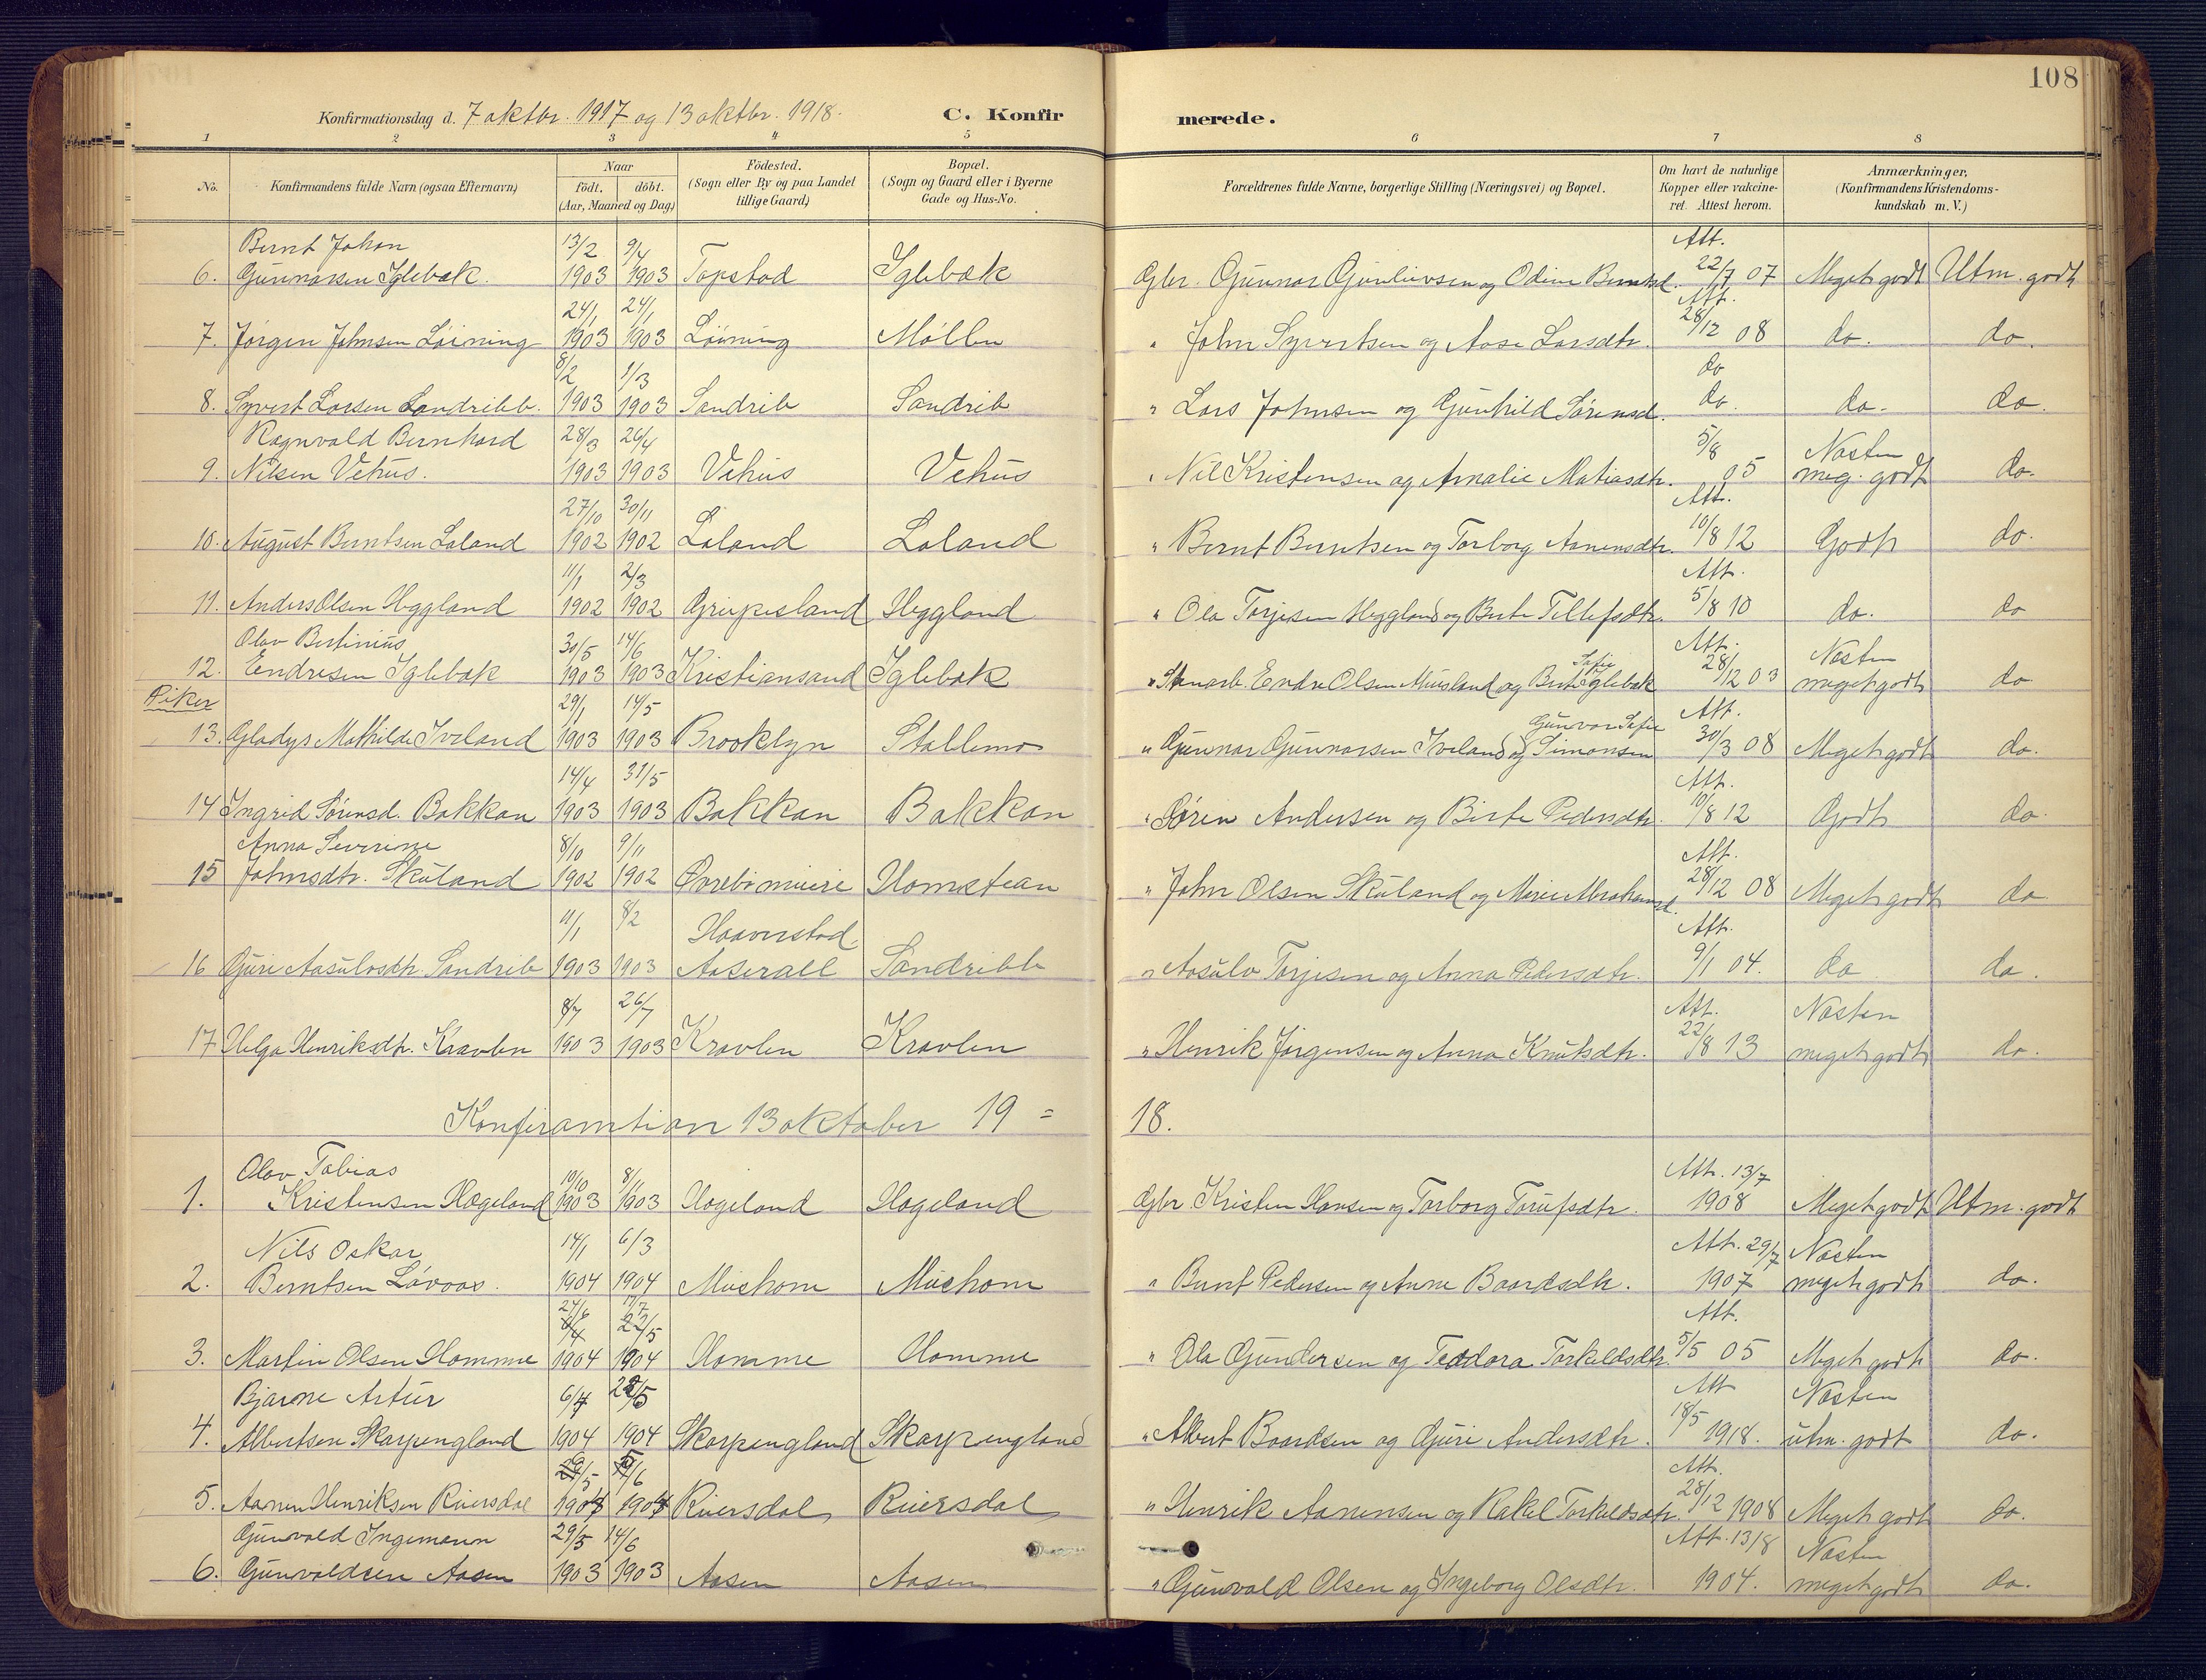 108
Konfirmationsdag d. 7 oktbr. 1917 og 13 oktbr. 1918.
C. Konfirmerede.
1 2 3 4 5 6 7 8
No. Konfirmandens fulde Navn (ogsaa Efternavn) Naar födt. döbt. (Aar, Maaned og Dag) Födested. (Sogn eller By og paa Landet tillige Gaard) Bopæl. (Sogn og Gaard eller i Byerne Gade og Hus-No. Forældrenes fulde Navne, borgerlige Stilling (Næringsvei) og Bopæl. Om havt de naturlige Kopper eller vakcineret. Attest herom. Anmærkninger, (Konfirmandens Kristendomskundskab m. V.)
Bernt Johan 13/2 9/4 Att.
6. Gunnarsen Iglebæk. 1903 1903 Topstad Iglebæk Gbr. Gunnar Gunluvsen og Odine Berntsd. 22/7 07 Meget godt Utm. godt
24/1 24/1 Att.
7. Jørgen Johnsen Løining 1903 1903 Løining Møllen " John Syvertsen og Aase Larsdtr. 28/12 08 do. do.
8/2 1/3 do
8. Syvert Larsen Landribb. 1903 1903 Sandrib Sandrib " Lars Johnsen og Gunhild Sørensd. do. do. do.
Ragnvald Bernhard 28/3 26/4 5/8 Næsten
9. Nilsen Vehus. 1903 1903 Vehus Vehus " Nil Kristensen og Amalie Matiasdtr. 05 meg. godt do.
27/10 30/11 Att.
10. August Berntsen Laland 1902 1902 Laland Laland " Bernt Berntsen og Torborg Aanensdtr. 10/8 12 Godt do.
11/1 2/3 Att.
11. Anders Olsen Heggland 1902 1902 Greipesland Heggland " Ola Torjesen Heggland og Berte Tellefsdtr. 5/8 10 do. do
Olav Bertinius 30/5 14/6 Att. Næsten
12. Endresen Iglebæk 1903 1903 Kristiansand Iglebæk " Stenarb. Endre Olsen Muusland og Berte Sofie Iglebæk 28/12 03 meget godt do
Piker 29/1 14/5 Att.
13. Gladys Mathilde Iveland 1903 1903 Brooklyn Stallemo " Gunnar Gunnarsen Iveland og Gunvor Sofie Simonsen 30/3 08 Meget godt do.
14/4 31/5 Att.
14 Ingrid Sørensd. Bakkan 1903 1903 Bakkan Bakkan " Søren Andersen og Birte Pedersdtr. 10/8 12 Godt do.
Anna Severine 8/10 9/11 Att.
15 Johnsdtr. Skuland 1902 1902 Øvrebømuere Homstean " John Olsen Skuland og Marie Abrahamsd. 28/12 08 Meget godt do
11/1 8/2 Haaverstad Att.
16 Guri Aasulvsdtr. Sandrib 1903 1903 Aaserall Sandribb " Aasulv Torjesen og Anna Pedersdtr. 9/1 04. do do.
8/7 26/7 Att. Næsten
17 Helga Henriksdtr. Kravlen 1903 1903 Kravlen Kravlen " Henrik Jørgensen og Anna Knutsdtr. 22/8 13 meget godt do.
Konfiramtian 13 oktober 19 = 18.
Olav Tobias 10/10 8/11 Att. 13/7
1. Kristensen Hægeland 1903 1903 Hægeland Hægeland Gbr Kristen Hansen og Torborg Torufsdtr. 1908 Meget godt Utm. godt
Nils Oskar 14/1 6/3 Att. 29/7 Næsten
2. Berntsen Løvaas. 1904 1904 Mushom Mushom " Bernt Pedersen og Anne Baardsdtr. 1907 meget godt do.
24/6 17/7 Att.
22/5
3. Martin Olsen Homme 1904 1904 Homme Homme " Ola Gundersen og Teodora Torkeldsdtr. 5/5 05 Meget godt do.
Bjarne Artur 6/4 22/5 Att Næsten
4. Albertsen Skarpengland 1904 1904 Skarpengland Skarpengland " Albert Baardsen og Guri Andersdtr. 18/5 1918. utm. godt do.
/5 /6 Att.
5. Aanen Henriksen Ruersdal 1904 1904 Ruersdal Ruersdal " Henrik Aanensen og Rakel Torkeldsdtr. 28/12 1908 Meget godt do.
Gunvald Ingemann 29/5 14/6 Att. 13/8 Næsten
6. Gunvaldsen Aasen 1903 1903 Aasen Aasen " Gunvald Olsen og Ingeborg Olsdtr. 1904. meget godt do.